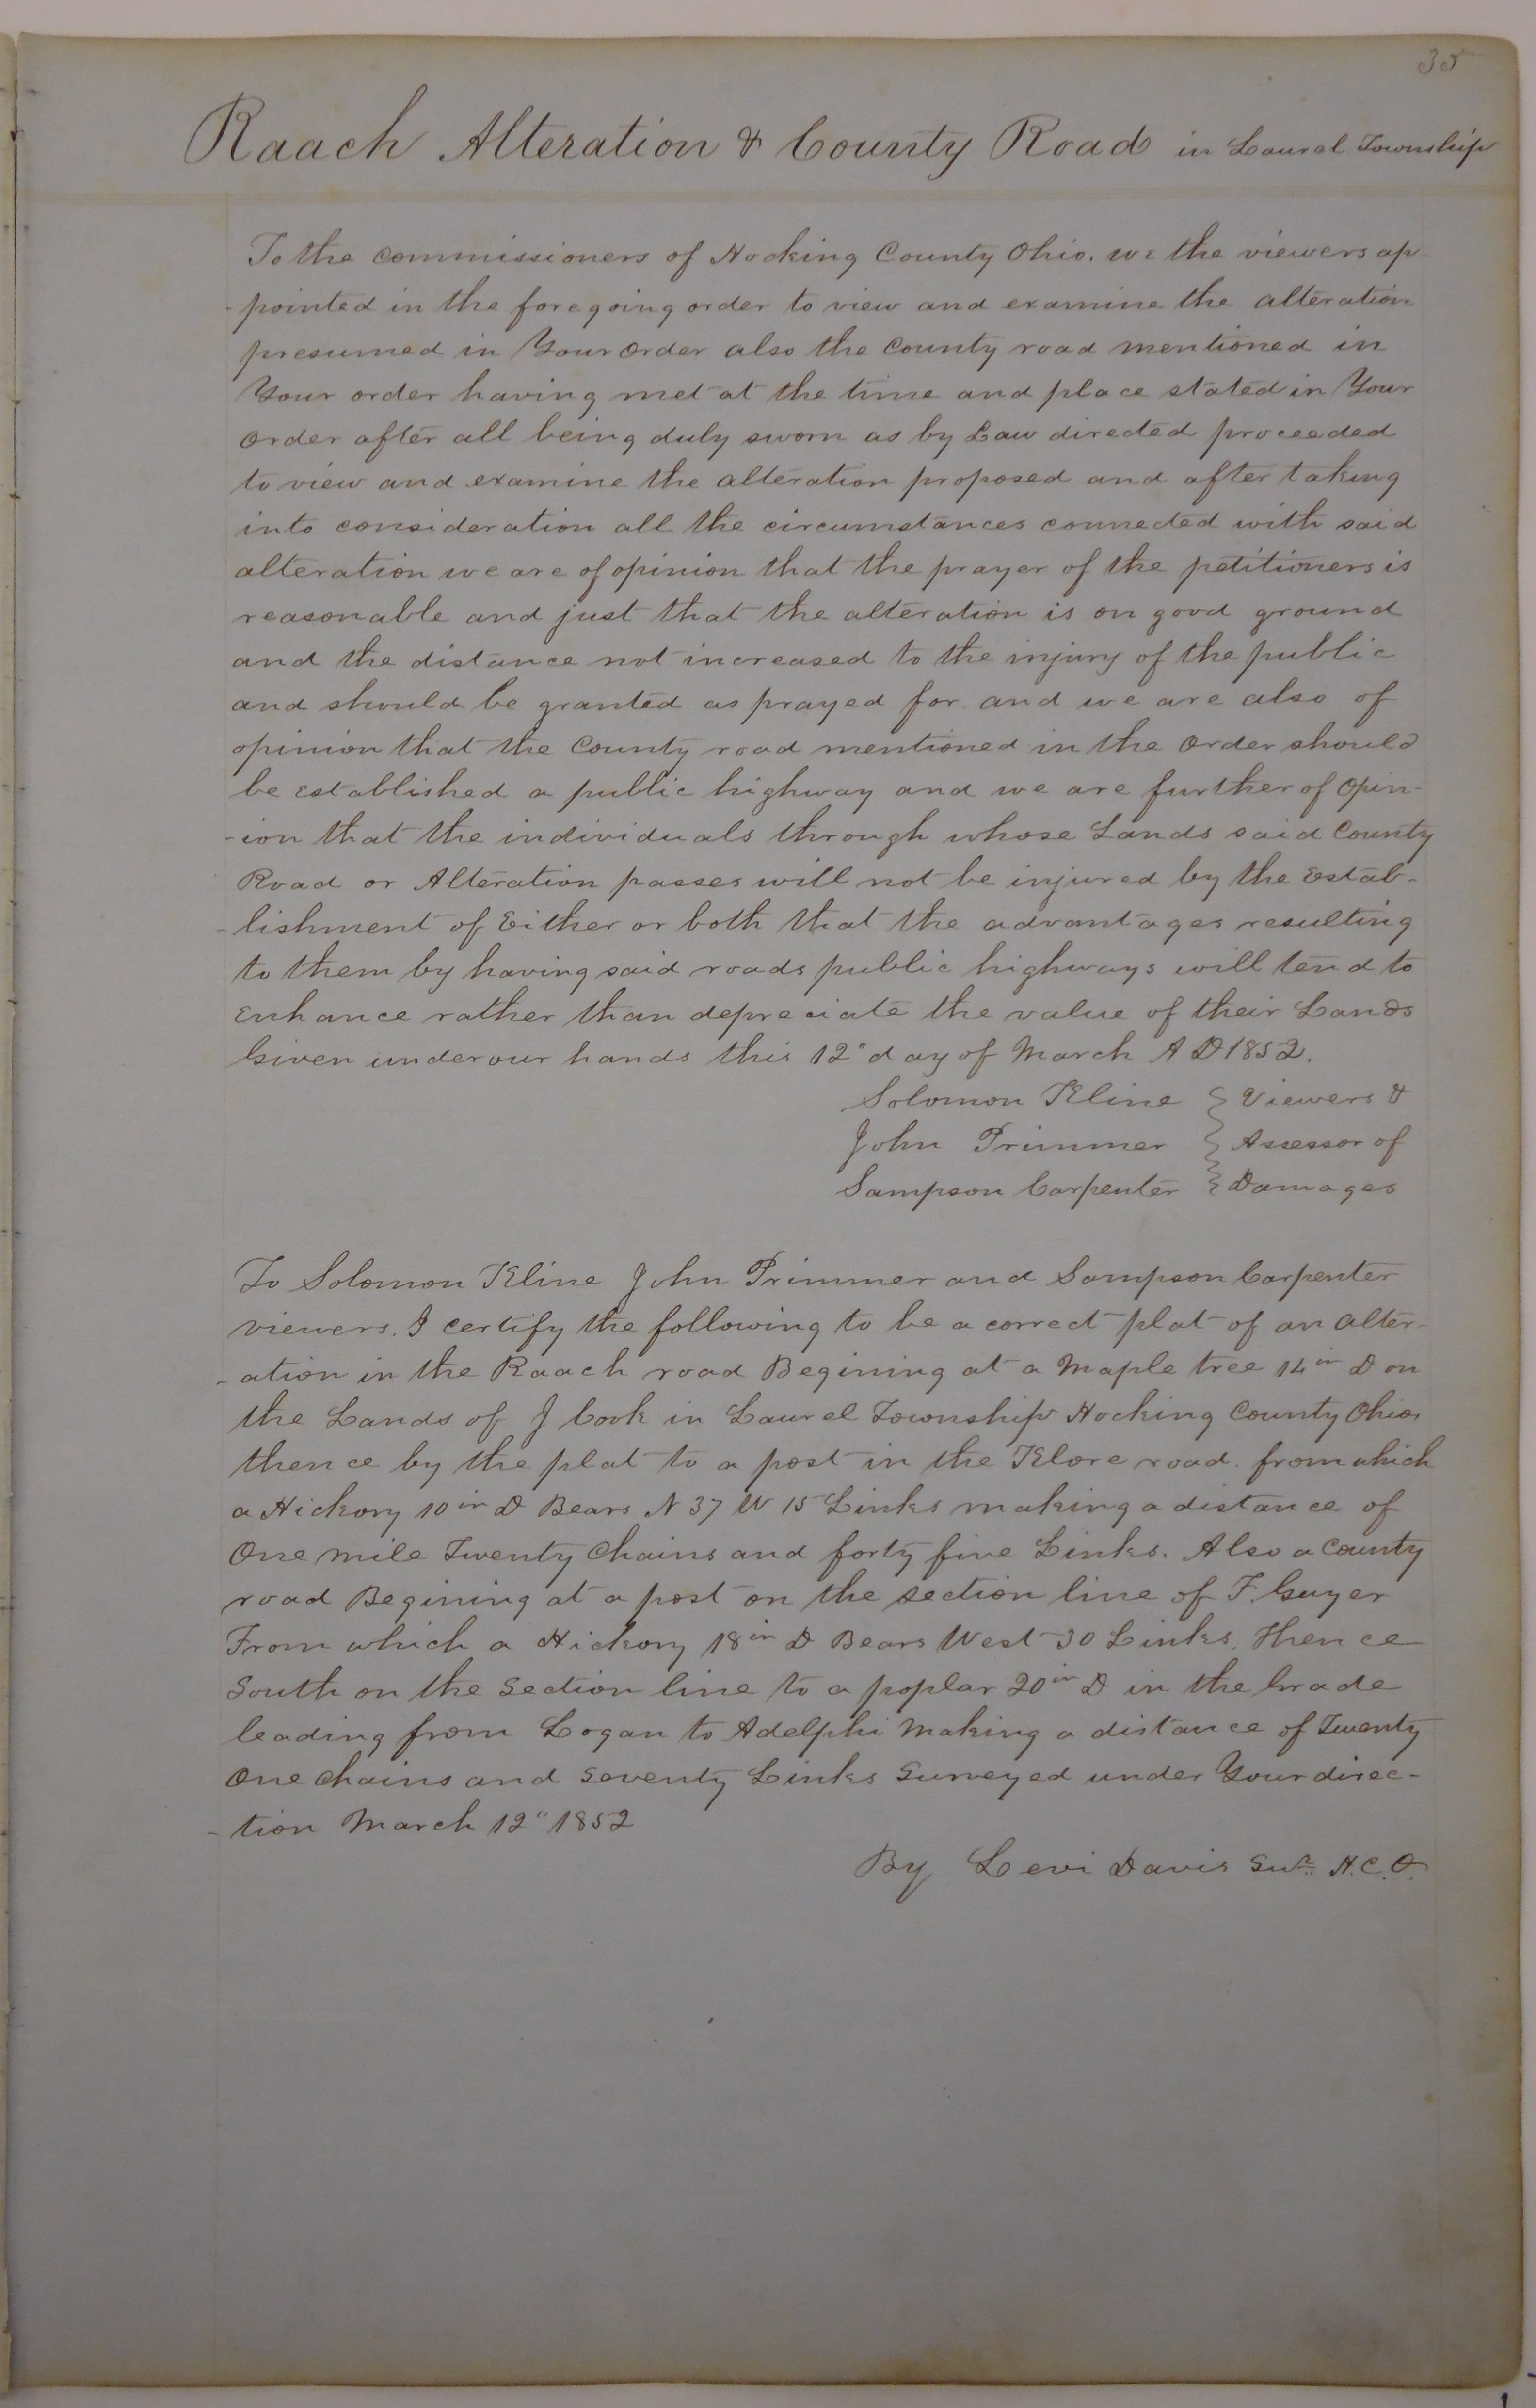 35
Raach Alteration & County Road in Laurel Township
To the commissioners of Hocking County Ohio. we the viewers ap
-pointed in the foregoing order to view and examine the alteration
presumed in Your Order also the County road mentioned in
Your order having met at the time and place stated in Your
Order after all being duly sworn as by Law directed proceeded
to view and examine the alteration proposed and after taking
into consideration all the circumstances connected with said
alteration we are of opinion that the prayer of the petitioners is
reasonable and just that the alteration is on good ground
and the distance not increased to the injury of the public
and should be granted as prayed for and we are also of
opinion that the County road mentioned in the Order should
be Established a public highway and we are further of Opin-
-ion that the individuals through whose Lands said County
Road or Alteration passes will not be injured by the Estab-
-lishment of Either or both that the advantages resulting
to them by having said roads public highways will tend to
Enhance rather than depreciate the value of their Lands
Given under our hands this 12" day of March A D 1852.
Solomon Kline } Viewers &
John Primmer } Assessor of
Sampson Carpenter } Damages
To Solomon Kline John Primmer and Sampson Carpenter
viewers. I certify the following to be a correct plat of an alter-
-ation in the Raach road Begining at a Maple tree 14 in D on
the Lands of J Cook in Laurel Township Hocking County Ohio,
thence by the plat to a post in the Klore road. from which
a Hickory 10 in D Bears N 37 W 15 Links making a distance of
One mile Twenty Chains and forty five Links. Also a County
road Begining at a post on the section line of F. Guyer
From which a Hickory 18 in D Bears West 30 Links. Thence
South on the Section line to a poplar 20 in D in the Grade
leading from Logan to Adelphi Making a distance of Twenty
One chains and Seventy Links Surveyed under Your direc-
-tion March 12" 1852
By Levi Davis Sur. H.C.O.